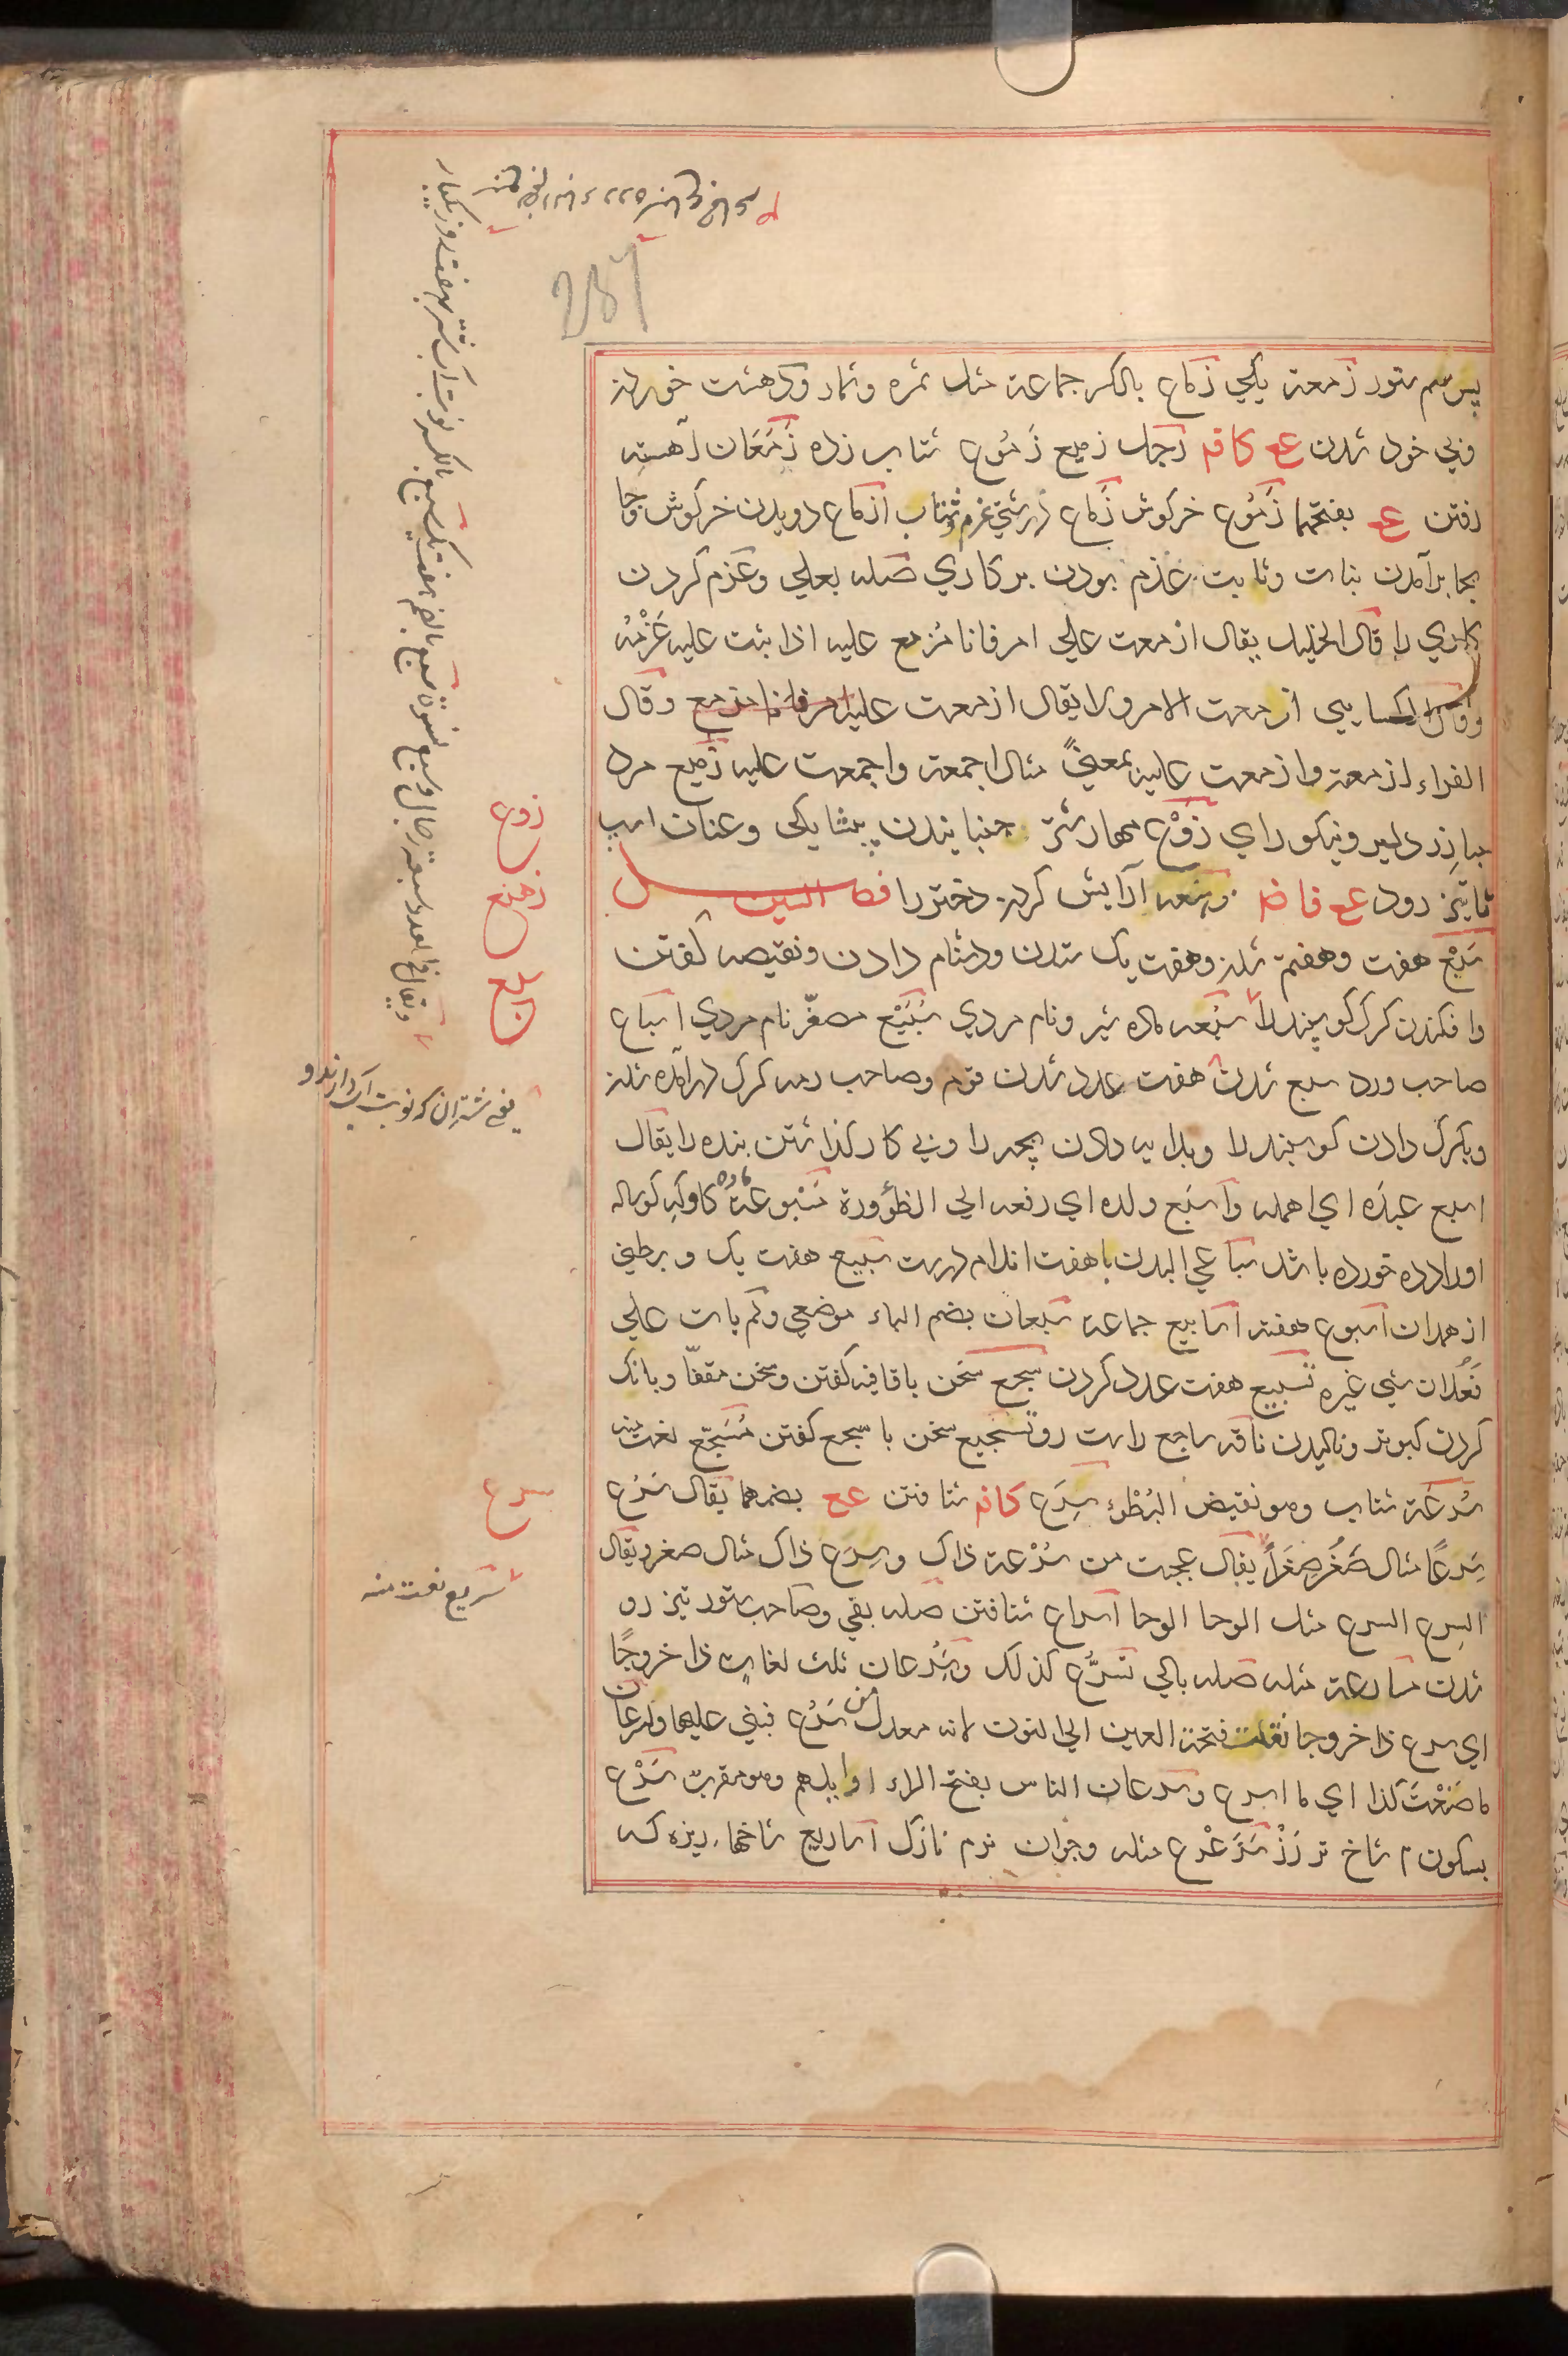 پس سم ستور زمعة یکی زماع بالکسر جماعة مثل ثمره وثمار ودهشت خوردن
وبی خود شدن عع کافم رجل زمیع زموع شتاب زده زَمَعَان آهسته
رفتن عع بفتحهما زَمُوع خرگوش زَماع درستی عزم وشتاب ازماع دویدن خرگوش وجا
بجا برآمدن نبات وثابت عزم بودن بر کاری صله بعلی وعزم کردن
کاری را قال الخلیل یقال ازمعت علی امر فانا مُزمع علیه اذا ثبت علیه عَزْمُه
وقال الکسایی ازمعت الامر ولا یقال ازمعت علیه وقال
الفراء ازمعته وازمعت علیه بمعنًی مثال اجمعته واجمعت علیه زمیع مرد
مبارز دلیر ونیکو رای زَوْع مهار شتر جنبانیدن پیشا یکی وعنان اسب
تا تیز رود عع فاضم زهنعه آرایش کردن دختر را فصل السین
سَبْع هفت وهفتم شدن وهفت یک ستدن ودشنام دادن ونقیصه گفتن
وافکندن گرگ گوسپند را سَبُعه ماده شیر ونام مردی سُبَیْع مصغّر نام مردی اسباع
صاحب ورد سبع شدن هفت عدد شدن قوم وصاحب رمه گرگ درآمده شدن
وبگرگ دادن گوسپند را وبدایه دادن بچه را وبی کار گذاشتن بنده را یقال
اسبع عبدَه ای اهمله واَسْبَع ولده ای دفعه الی الظؤورة مَسْبوعَة ماده گاو که گوساله
او را دده خورده باشد سباعی البدن با هفت اندام درست سَبیع هفت یک وبرطنی
از همدان اسبوع هفته اسابیع جماعة سَبُعان بضم الباء موضعی ولم یات علی
فَعُلان شیء غیره تسبیع هفت عدد کردن سجع سخن باقافیه گفتن وسخن مقفّا وبانگ
کردن کبوتر ونالیدن ناقه ساجع راست رو تسجیع سخن با سجع گفتن مُسَجّع نعت منه
سُرعَة شتاب وهو نقیض البُطْوء سِرَع کافم شتافتن عع بضمهما یقال سَرُع
سِرَعًا مثال صَغُر صِغَرًا یقال عجبت من سُرْعة ذاک وسِرَع ذاک مثال صغر ویقال
السرع السرع مثل الوحا الوحا اسراع شتافتن صله بفی وصاحب ستور تیز رو
شدن مسارعة مثله صله بالی تسرُّع کذلک وسَُِرعان ثلث لغات ذا خروجًا
ای سرع ذا خروجا نقلت فتحة العین الی النون لانه معدل من سَرُع فبنی علیها ولسرعان
ما صَنَعْتَ کذا ای ما اسرع وسرعان الناس بفتح الراء اوایلهم وهو معرب سَرْع
بسکون م شاخ تر رَز سَرَعْرَع مثله وجوان نرم نازک اساریع شاخها ریزه که
زوع
زهنع
سبع
یعنی شتران که نوبت آب دارند و
سرع
سَریع نعت منه